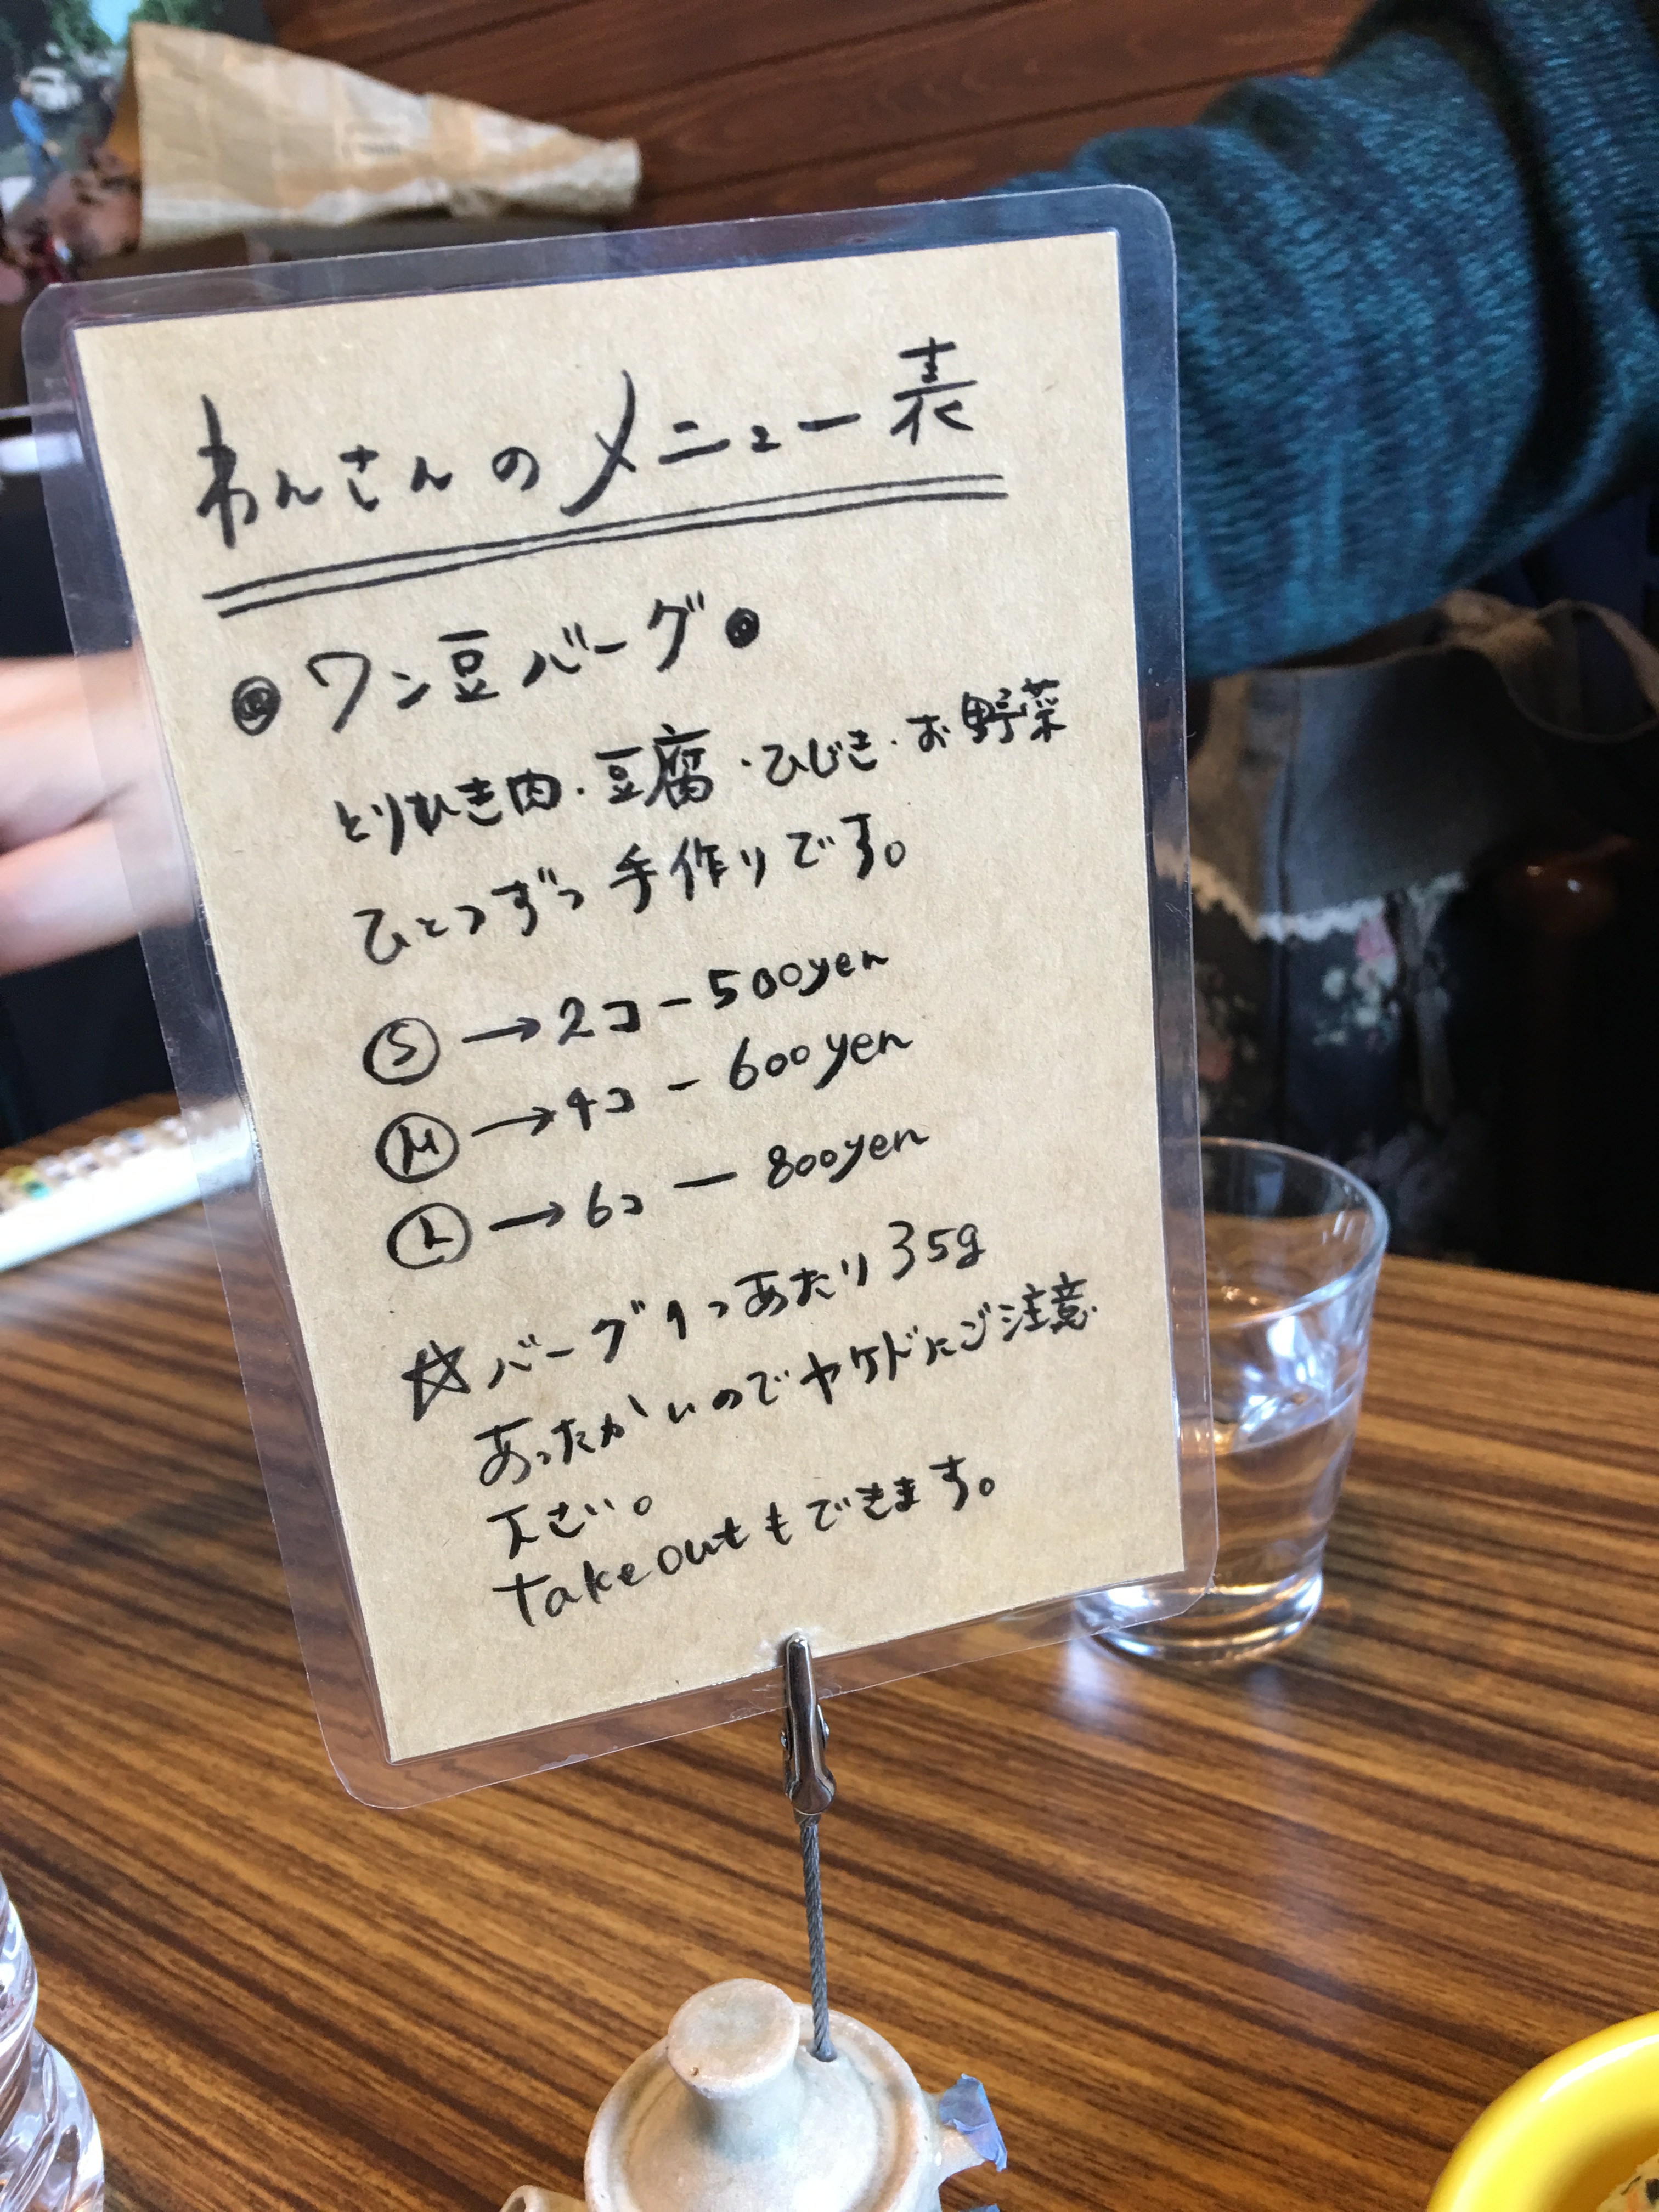 わんさんのメニュー表
◎ワン豆バーグ◎
とりひき肉・豆腐・ひじき・お野菜
ひとつずつ手作りです。
Ⓢ→2コ－500yen
Ⓜ→4コ－600yen
Ⓛ→6コ－800yen
☆バーグ1つあたり35g
あったかいのでヤケドにご注意
下さい。
takeoutもできます。